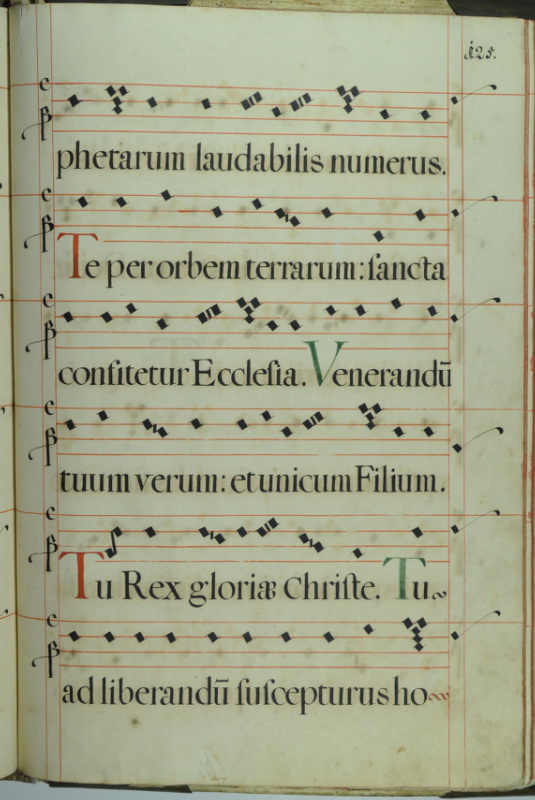 125.
phetarum laudabilis numerus.
Te per orbem terrarum: ſancta
confitetur Eccleſia. Venerandū
tuum verum: et unicum Filium.
Tu Rex gloriæ Chriſte. Tu
ad liberandū ſuſcepturus ho